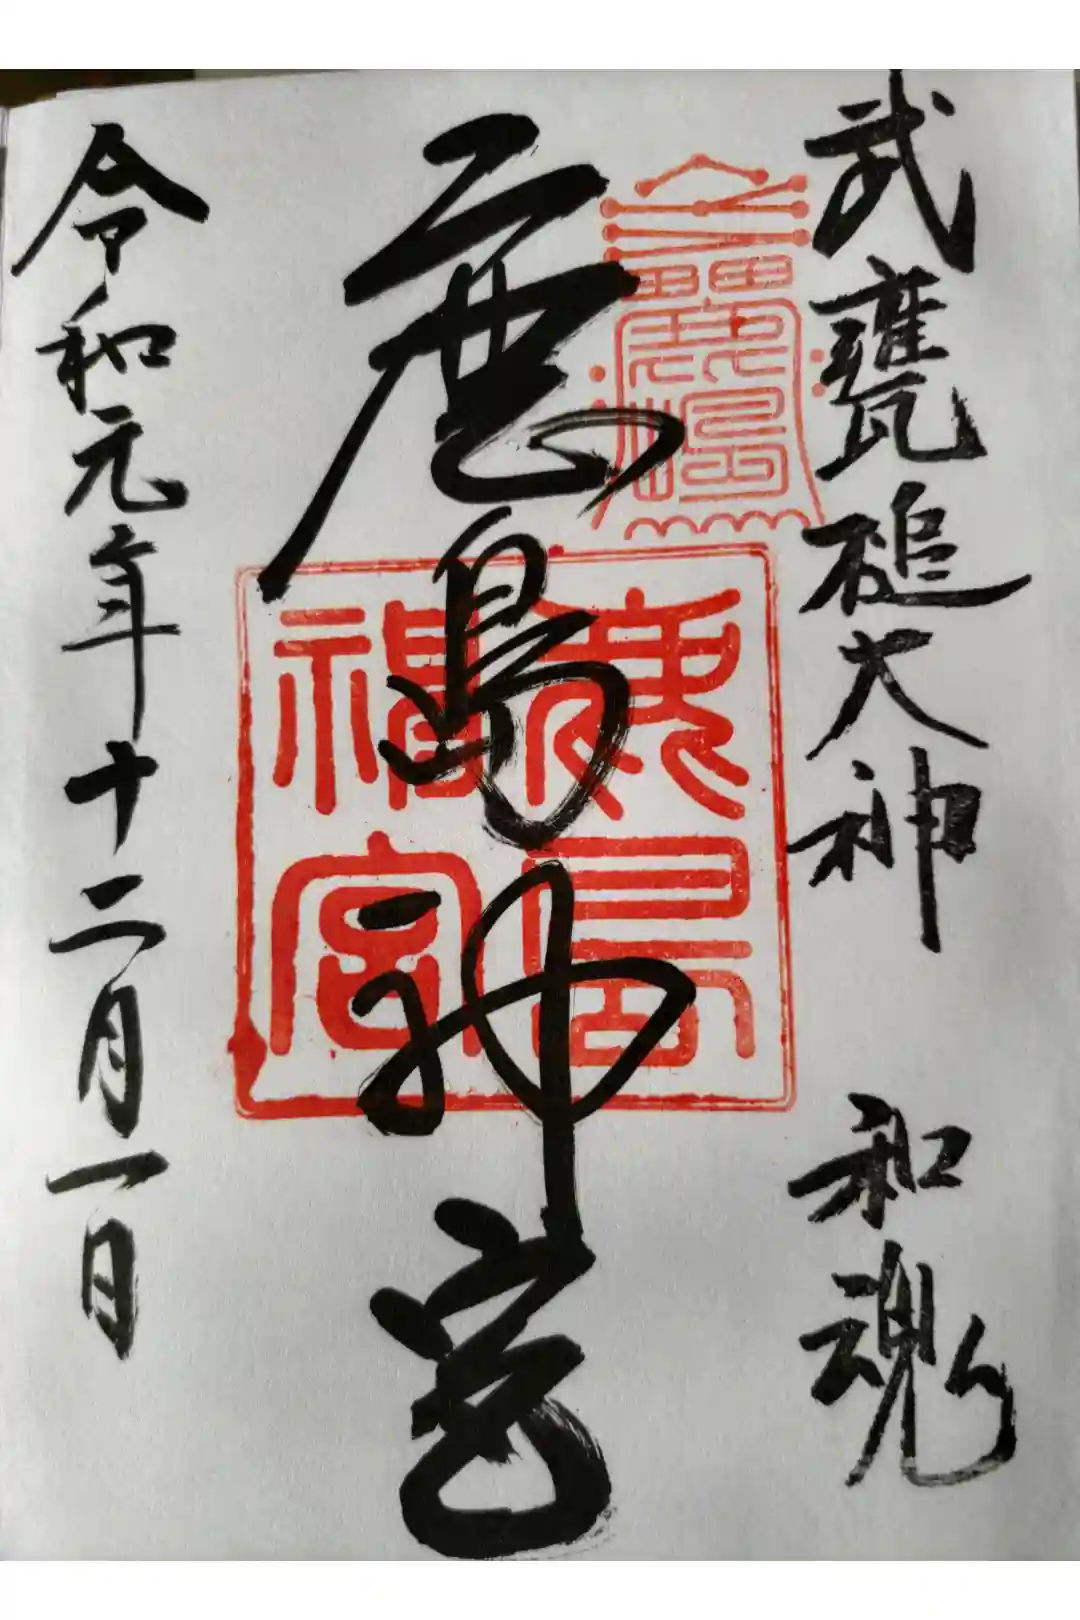 武甕槌大神 和魂
鹿島神宮
鹿島
神宮
令和元年十二月一日